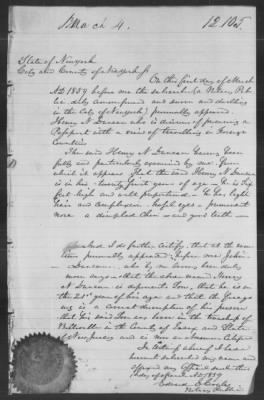 March 4. 12.105
State of New York
City and County of New York ss
On this first day of March
AD 1859 before me the subscriber a Notary Pub
lic duly commissioned and sworn and dwelling
in the City of New York personally appeared
Henry N Duncan who is desirous of procuring a
Passport with a view of travelling in Foreign
Countries
The said Henry N Duncan being care
fully and particularly examined by me from
which it appears that the said Henry N Duncan
is in his twenty first year of age is six
feet high and well proportioned has light
Hair and complexion, light eyes prominent
nose a dimpled chin and good teeth
And I do further certify, that at the same
time personally appeared before me John
Duncan who by me being duly
sworn says that the above named Henry
N Duncan is deponents Son, that he is in
the 21st year of his age and that the forego
ing is a correct description of his person
that his said Son was born in the township of
Belleville in the County of Essex and State
of New Jersey and is now an American Citizen
In Testimony whereof I have
hereunto subscribed my name and
affixed my official seal this
day of March AD 1859
Edward
Notary Public